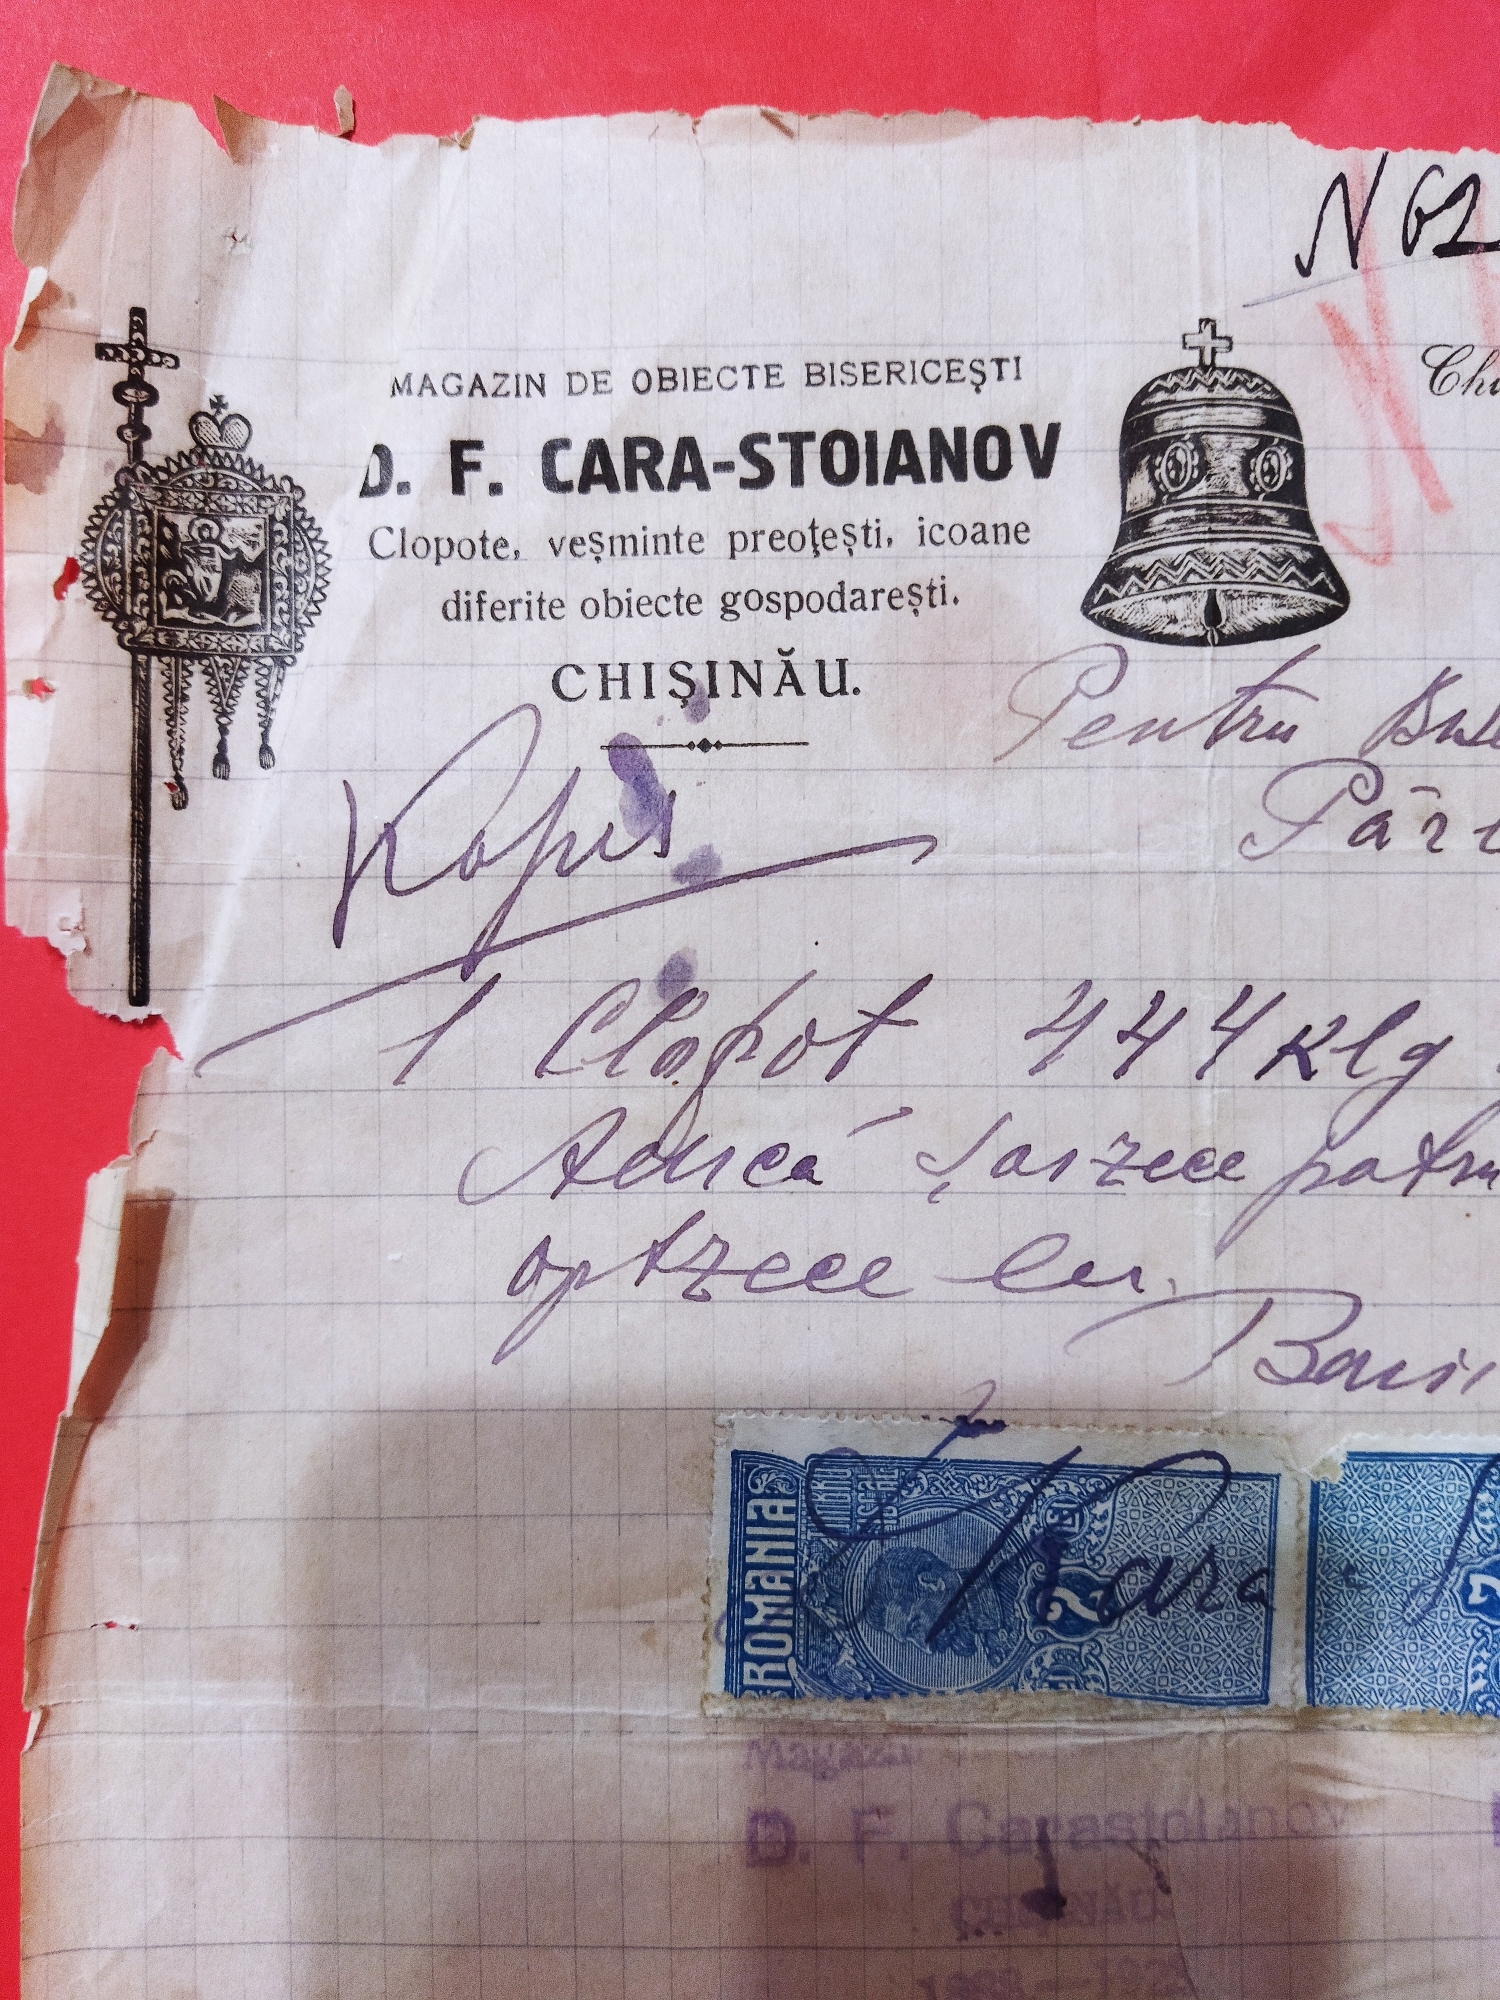 N 62
MAGAZIN DE OBIECTE BISERICEŞTI
D. F. CARA-STOIANOV
Clopote, veşminte preoţeşti, icoane
diferite obiecte gospodareşti.
CHIŞINĂU.
Pentru
1 Clopot 444 Klg
Adică șaizece patru
optzece lei
ROMANIA
TIMBRU FISCAL
2
2
Kara
Magazin
D. F. Carastoianov
CHIŞINĂU